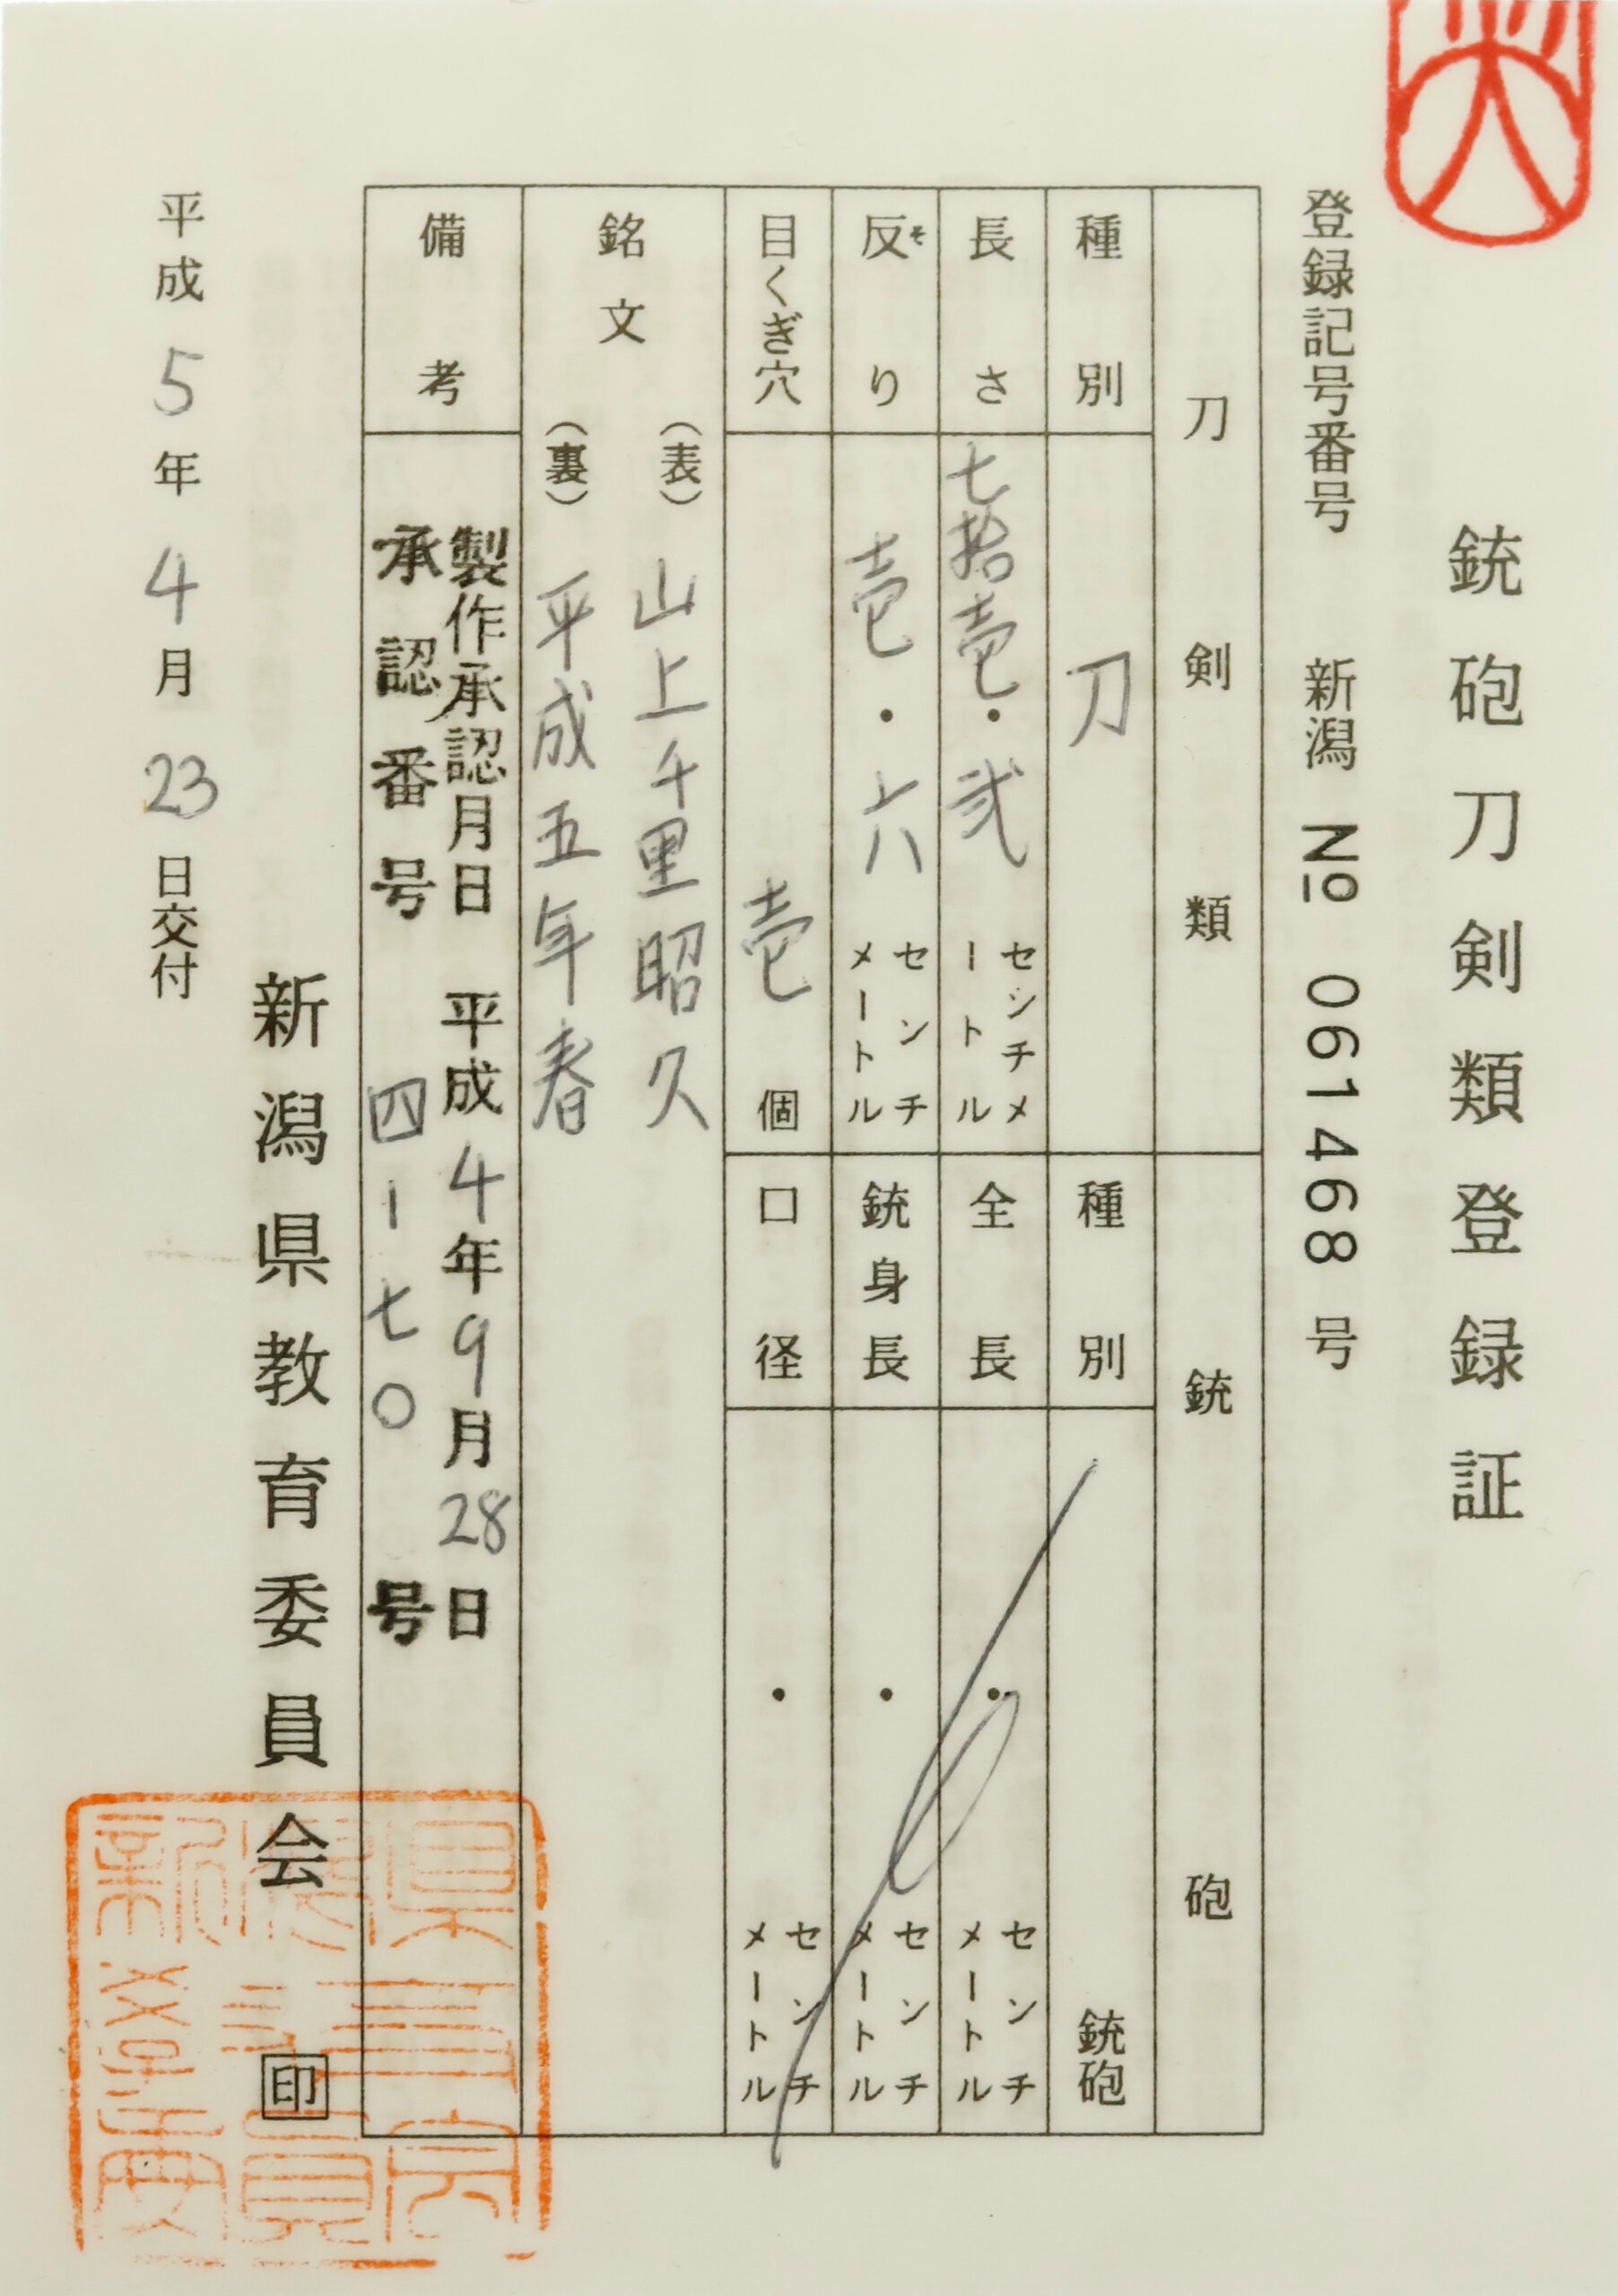 銃砲刀剣類登録証
登録記号番号 新潟 № 061468 号
刀剣類
種別 刀
長さ 七拾壱・弐 センチメートル
反り 壱・六 センチメートル
そ
目くぎ穴 壱 個
銃砲
種別 銃砲
全長 ・ センチメートル
銃身長 ・ センチメートル
口径 ・ センチメートル
銘文
(表) 山上千里昭久
(裏) 平成五年春
備考
製作承認月日 平成4年9月28日
承認番号 四-七〇 号
新潟県教育委員会 印
平成5年4月23日交付